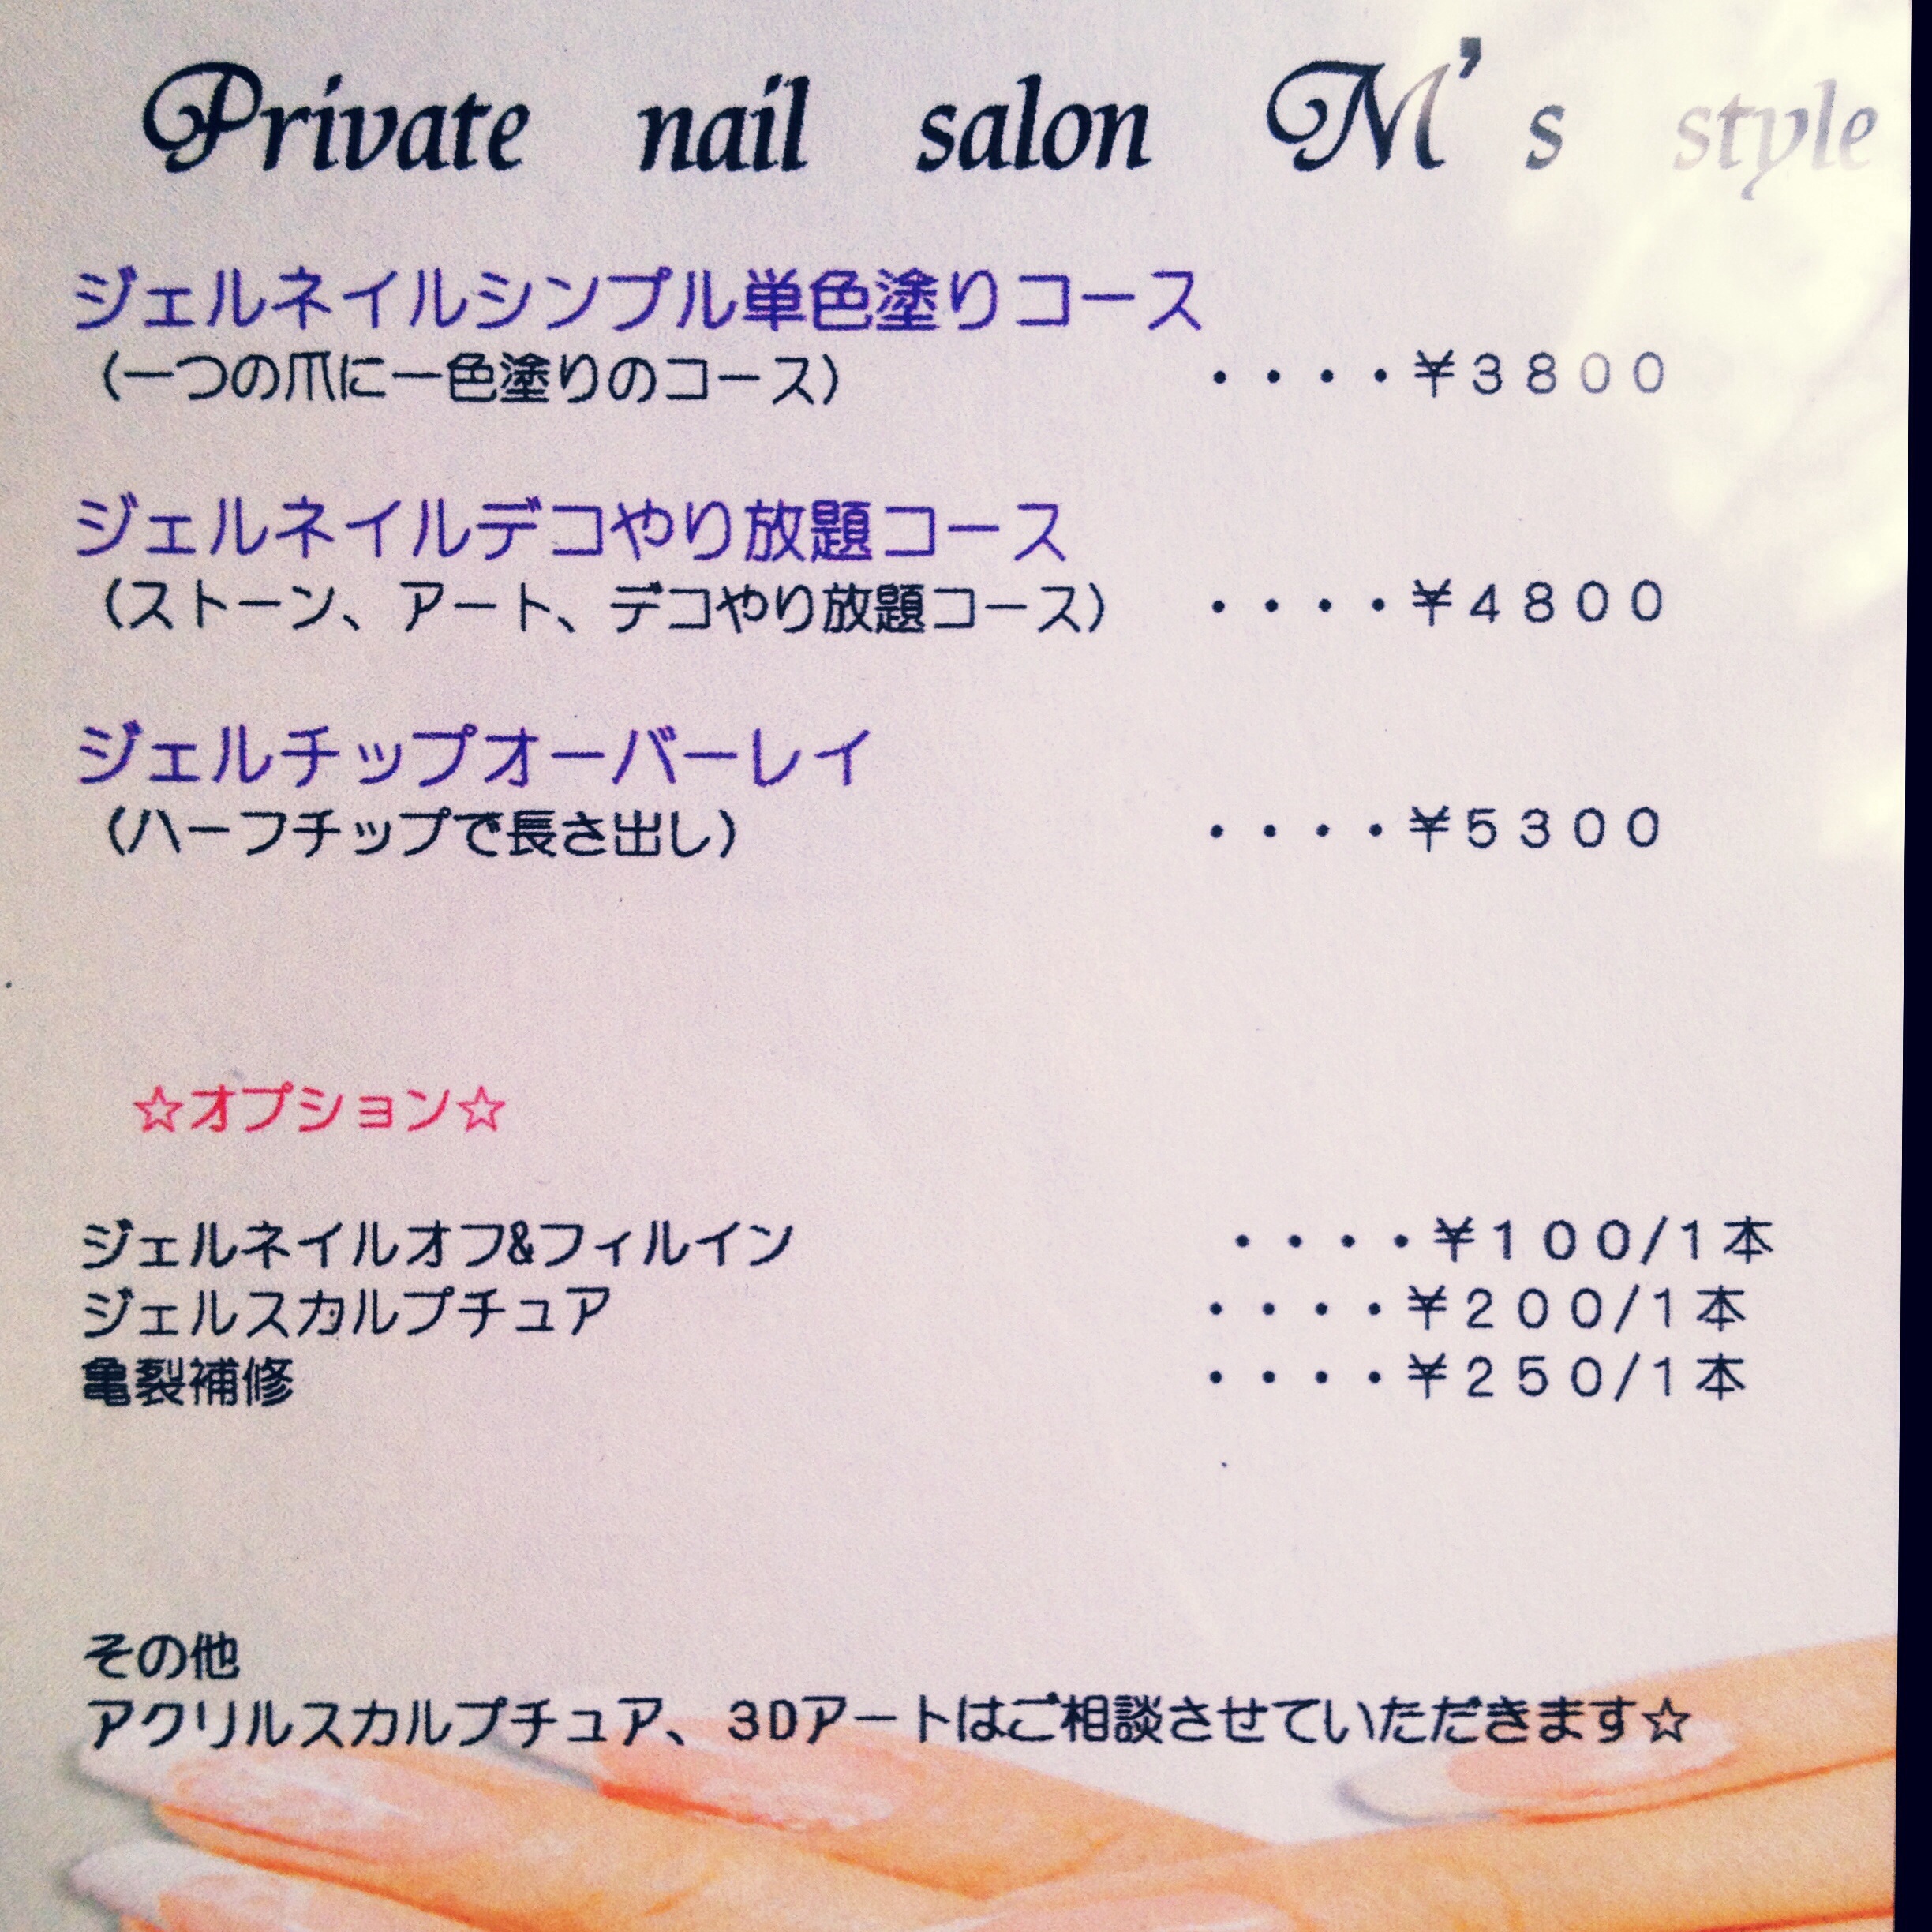 Private nail salon M's style
ジェルネイルシンプル単色塗りコース
(一つの爪に一色塗りのコース) ・・・・¥3800
ジェルネイルデコやり放題コース
(ストーン、アート、デコやり放題コース) ・・・・¥4800
ジェルチップオーバーレイ
(ハーフチップで長さ出し) ・・・・¥5300
☆オプション☆
ジェルネイルオフ&フィルイン ・・・・¥100/1本
ジェルスカルプチュア ・・・・¥200/1本
亀裂補修 ・・・・¥250/1本
その他
アクリルスカルプチュア、3Dアートはご相談させていただきます☆